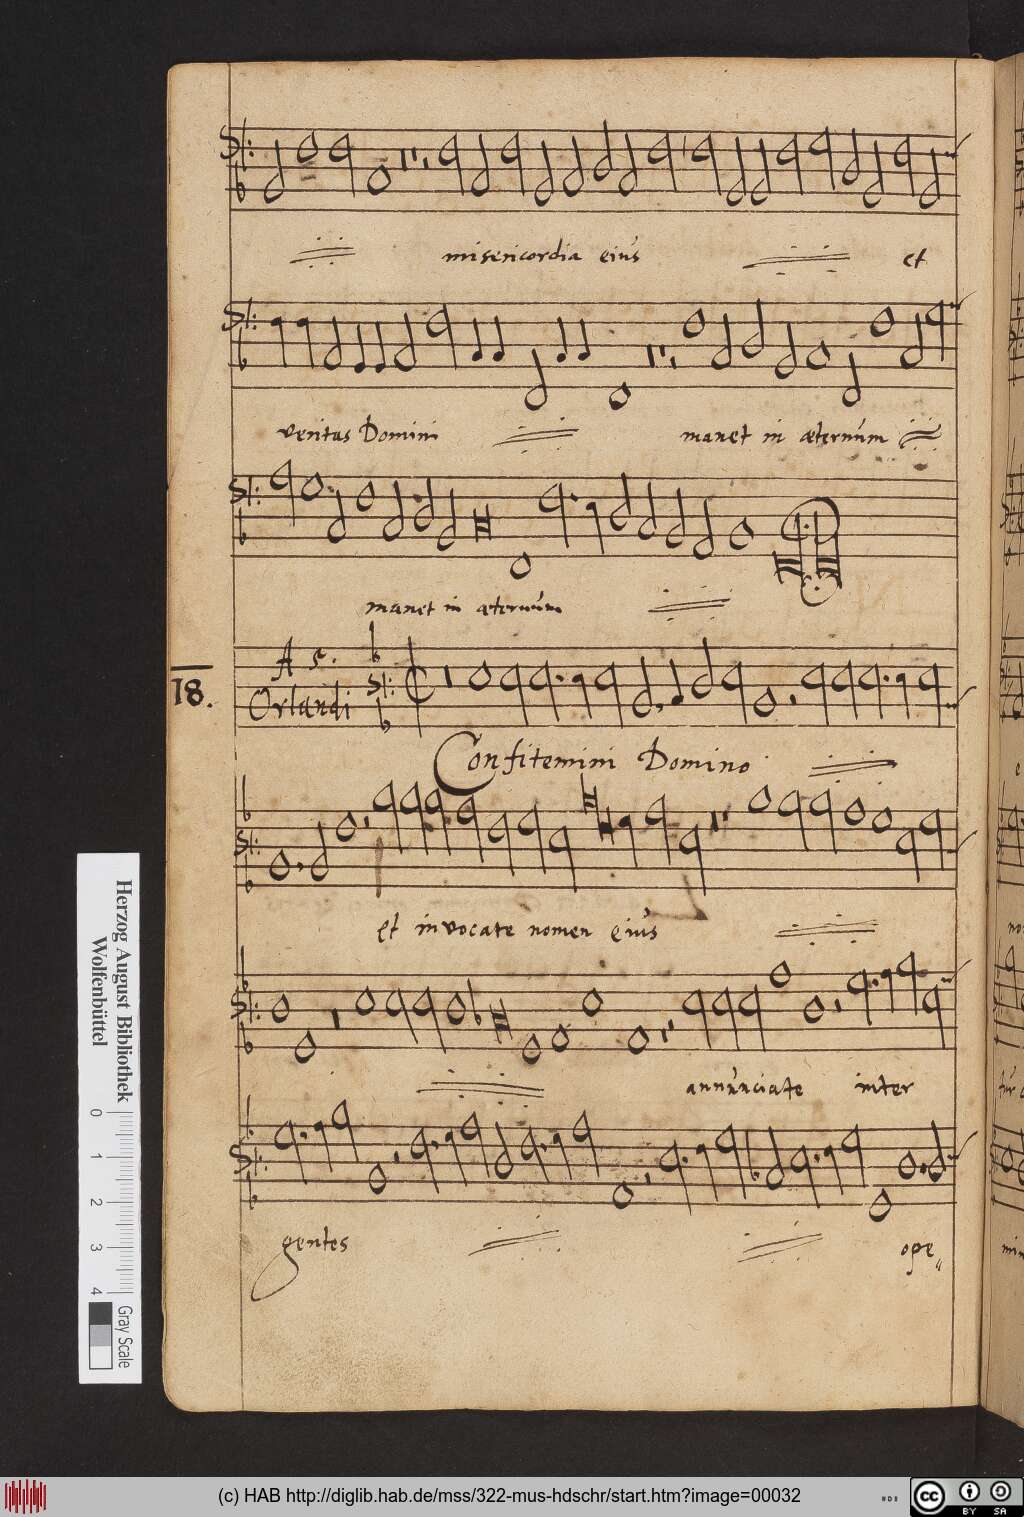 misericordia eius et
veritas Domini manet in æternum
manet in æternum
18.
A 5.
Orlandi
Confitemini Domino
et invocate nomen eius
annunciate inter
gentes ope„
Herzog August Bibliothek
Wolfenbüttel
0 1 2 3 4
Gray Scale
(c) HAB http://diglib.hab.de/mss/322-mus-hdschr/start.htm?image=00032
cc BY SA